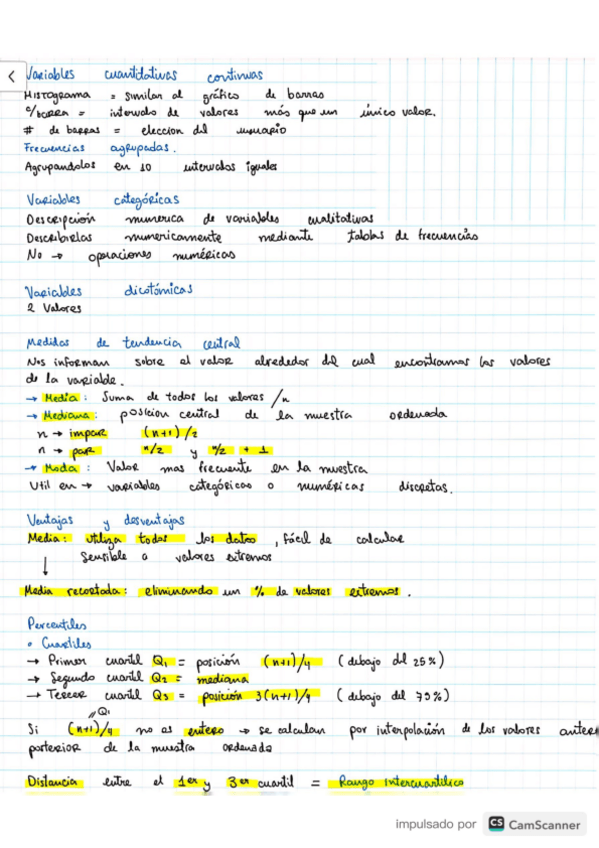 Variables cuantitativas continuas
Histograma = similar al gráfico de barras
c/barra = intervalo de valores más que un único valor.
# de barras = eleccion del usuario
Frecuencias agrupadas.
Agrupandolos en 10 intervalos iguales
Variables categóricas
Descripción numerica de variables cualitativas
Describirlas numericamente mediante tablas de frecuencias
No → operaciones numéricas
Variables dicotómicas
2 Valores
Medidas de tendencia central
Nos informan sobre el valor alrededor del cual encontramos los valores
de la variable.
→ Media: Suma de todos los valores /n
→ Mediana: posicion central de la muestra ordenada
n → impar (n+1)/2
n → par n/2 y n/2 + 1
→ Moda: Valor mas frecuente en la muestra
Util en → variables categóricas o numéricas discretas.
Ventajas y desventajas
Media: utiliza todos los datos, fácil de calcular
↓ Sensible a valores extremos
Media recortada: eliminando un % de valores extremos.
Percentiles
• Cuartiles
→ Primer cuartil Q1 = posición (n+1)/4 (debajo del 25%)
→ Segundo cuartil Q2 = mediana
→ Tercer cuartil Q3 = posición 3(n+1)/4 (debajo del 75%)
// Q1
Si (n+1)/4 no es entero → se calculan por interpolación de los valores anter
porterior de la muestra ordenada
Distancia entre el 1er y 3er cuartil = Rango intercuartilico
impulsado por CS CamScanner